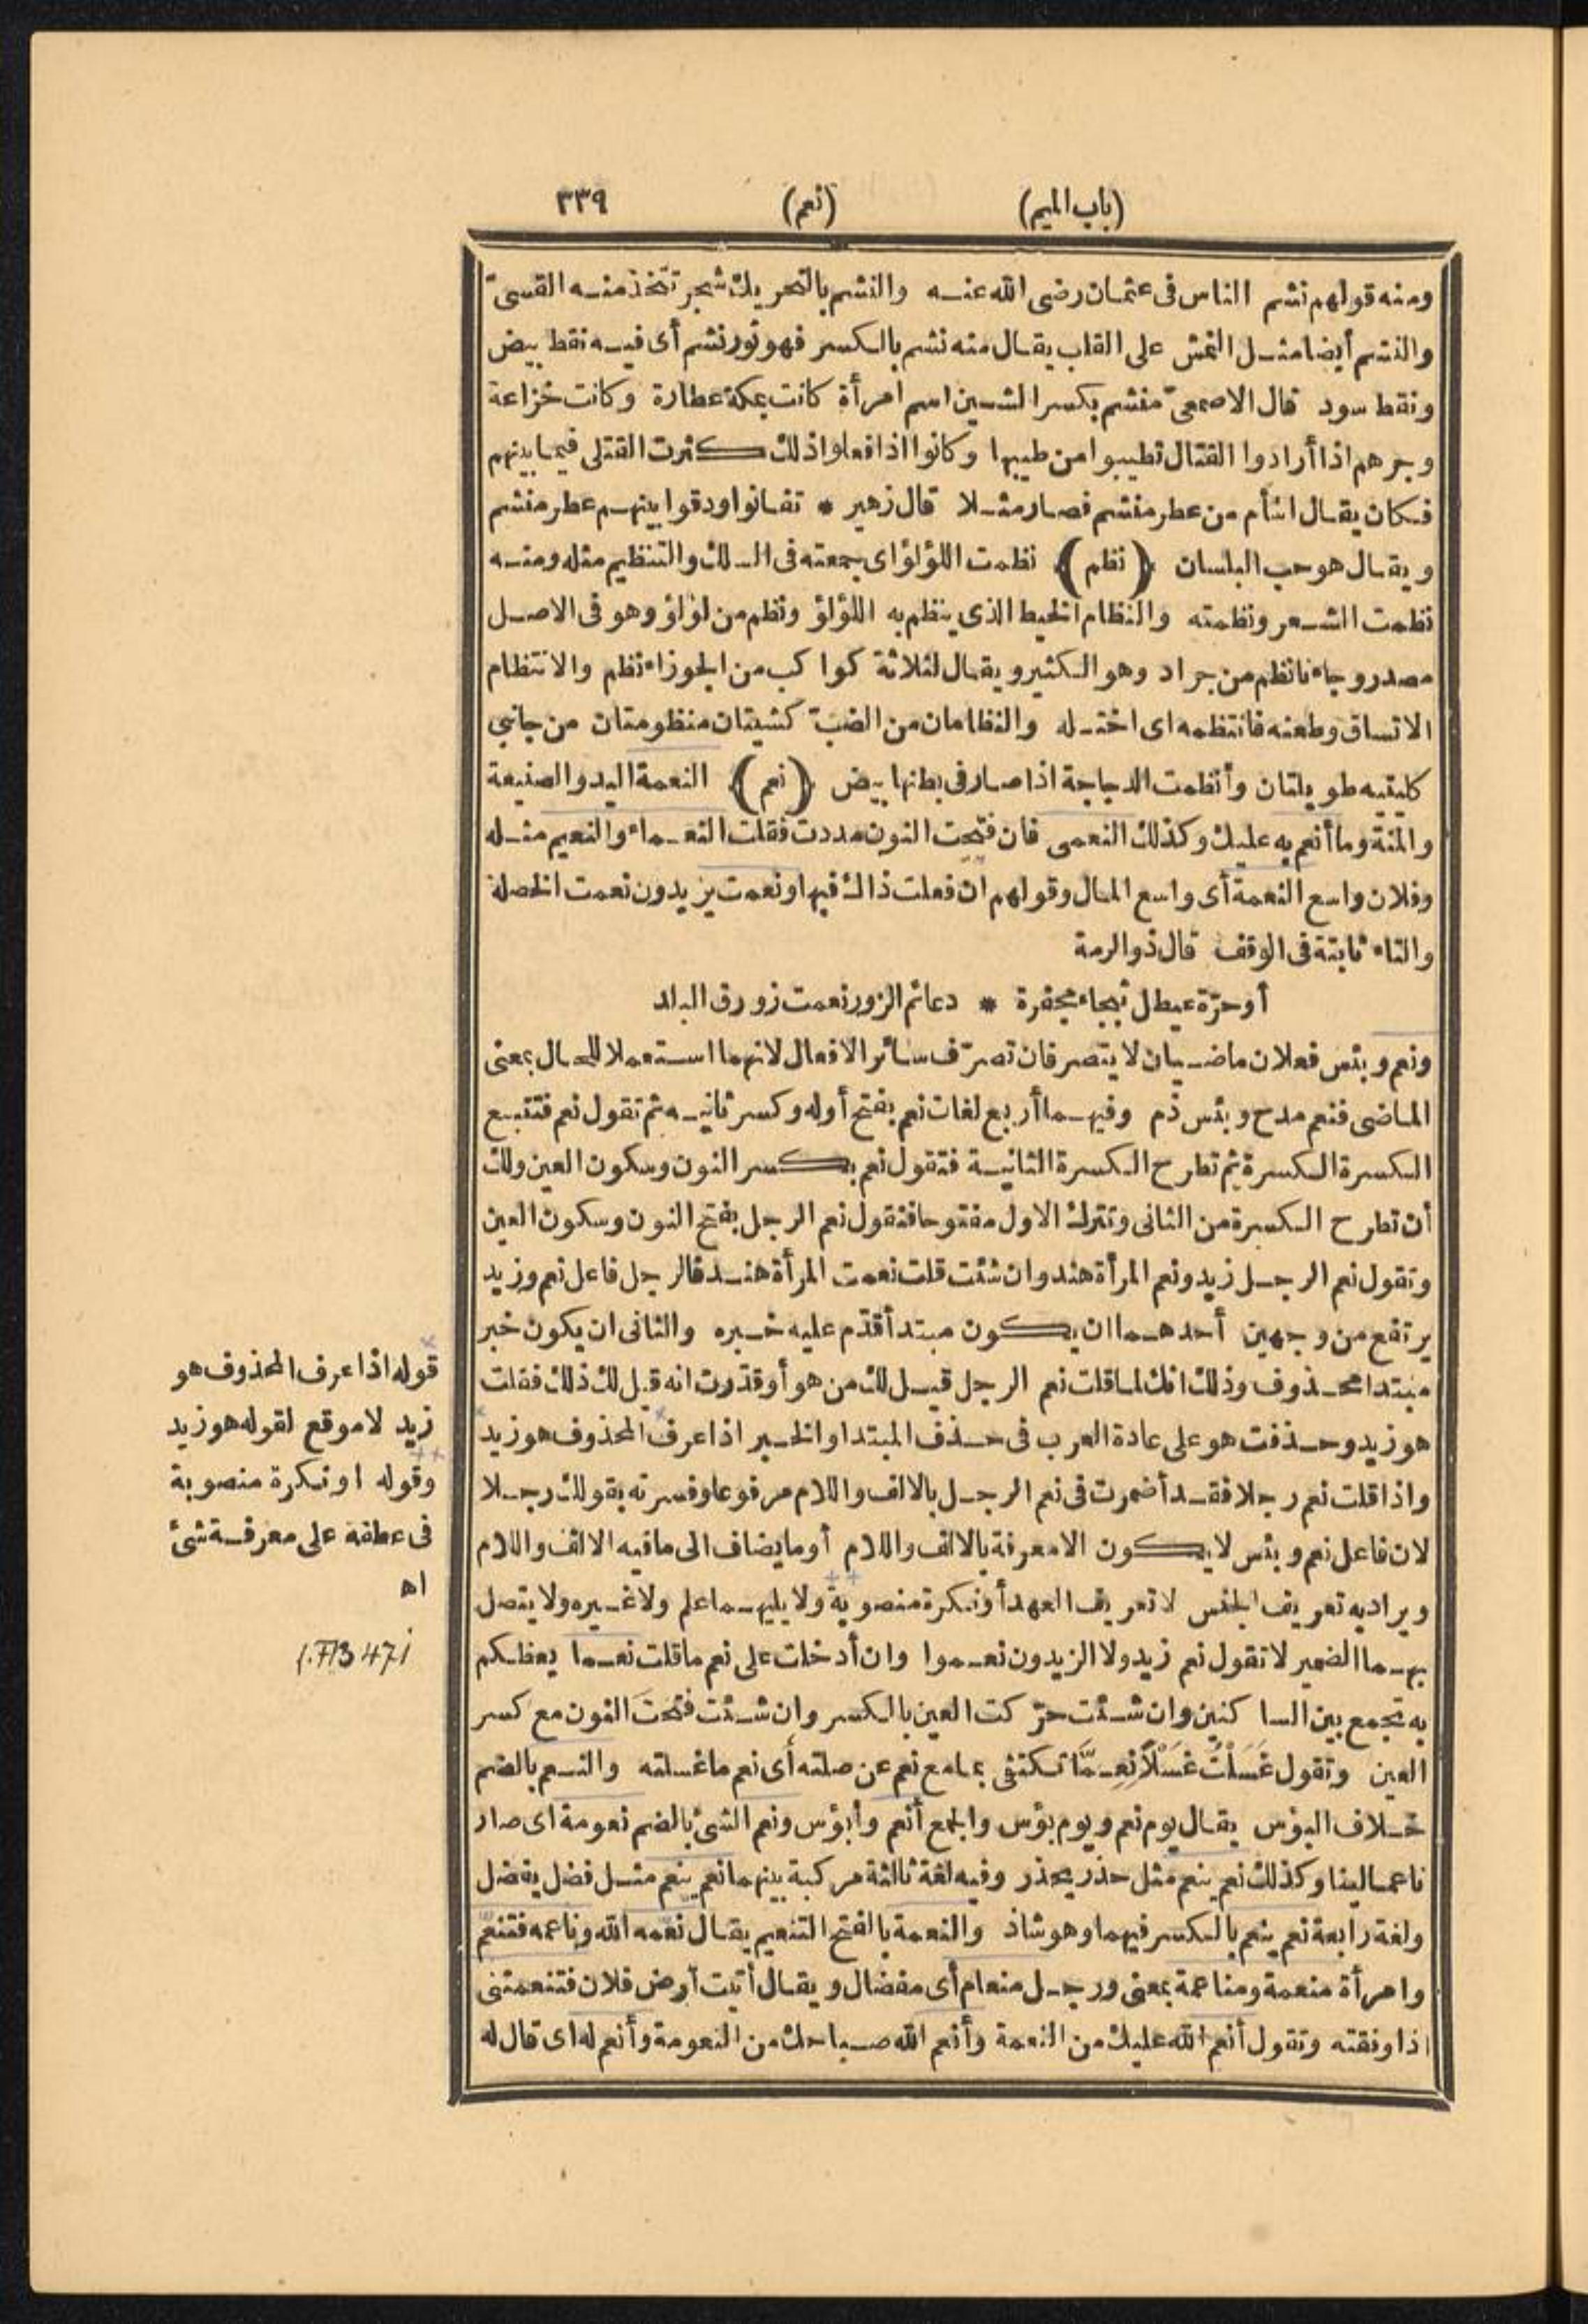 (باب الميم) (نعم) ٣٣٩
ومنه قولهم نشم الناس فى عثمان رضى الله عنه والنشم بالتحريك شجر تتخذ منه القسىّ
والنشم أيضا مثل النمش على القلب يقال منه نشم بالكسر فهو ثور نشم أى فيه نقط بيض
ونقط سود قال الاصمعىّ منشم بكسر الشين اسم امرأة كانت بمكة عطارة وكانت خزاعة
وجرهم اذا أرادوا القتال تطيبوا من طيبها وكانوا اذا فعلوا ذلك كثرت القتلى فيما بينهم
فكان يقال اشأم من عطر منشم فصار مثلا قال زهير * تفانوا ودقوا بينهم عطر منشم
ويقال هو حب البلسان (نظم) نظمت اللؤلؤ اى جمعته فى السلك والتنظيم مثله ومنه
نظمت الشعر ونظمته والنظام الخيط الذى ينظم به اللؤلؤ ونظم من لؤلؤ وهو فى الاصل
مصدر وجاءنا نظم من جراد وهو الكثير ويقال لثلاثة كواكب من الجوزاء نظم والانتظام
الاتساق وطعنه فانتظمه اى اختله والنظامان من الضبّ كشيتان منظومتان من جانبى
كليتيه طويلتان وأنظمت الدجاجة اذا صار فى بطنها بيض (نعم) النعمة اليد والصنيعة
والمنة وما أنعم به عليك وكذلك النعمى فان فتحت النون مددت فقلت النعماء والنعيم مثله
وفلان واسع النعمة أى واسع المال وقولهم ان فعلت ذاك فبها ونعمت يريدون نعمت الخصلة
والتاء ثابتة فى الوقف قال ذو الرمة
أو حرّة عيطل ثبجاء مجفرة * دعائم الزور نعمت زورق البلد
ونعم وبئس فعلان ماضيان لا يتصرفان تصرّف سائر الافعال لانهما استعملا للحال بمعنى
الماضى فنعم مدح وبئس ذم وفيهما أربع لغات نعم بفتح أوله وكسر ثانيه ثم تقول نعم فتتبع
الكسرة الكسرة ثم تطرح الكسرة الثانية فتقول نعم بكسر النون وسكون العين ولك
أن تطرح الكسرة من الثانى وتترك الاول مفتوحا فتقول نعم الرجل بفتح النون وسكون العين
وتقول نعم الرجل زيد ونعم المرأة هند وان شئت قلت نعمت المرأة هند فالرجل فاعل نعم وزيد
يرتفع من وجهين أحدهما ان يكون مبتدأ قدّم عليه خبره والثانى ان يكون خبر
مبتدا محذوف وذلك انك لما قلت نعم الرجل قيل لك من هو أو قدّرت انه قيل لك ذلك فقلت
هو زيد وحذفت هو على عادة العرب فى حذف المبتدا والخبر اذا عرف المحذوف هو زيد
واذا قلت نعم رجلا فقد أضمرت فى نعم الرجل بالالف واللام مرفوعا وفسرته بقولك رجلا
لان فاعل نعم وبئس لا يكون الا معرفة بالالف واللام أو ما يضاف الى ما فيه الالف واللام
ويراد به تعريف الجنس لا تعريف العهد أو نكرة منصوبة ولا يليهما علم ولا غيره ولا يتصل
بهما الضمير لا تقول نعم زيد ولا الزيدون نعموا وان أدخلت على نعم ما قلت نعما يعظكم
به تجمع بين الساكنين وان شئت حرّكت العين بالكسر وان شئت فتحت النون مع كسر
العين وتقول غَسَلْتُ غَسْلًا نِعِمَّا تكتفى بما مع نعم عن صلته أى نعم ما غسلته والنعم بالضم
خلاف البؤس يقال يوم نعم ويوم بؤس والجمع أنعم وأبؤس ونعم الشئ بالضم نعومة اى صار
ناعما لينا وكذلك نعم ينعم مثل حذر يحذر وفيه لغة ثالثة مركبة بينهما نعم ينعم مثل فضل يفضل
ولغة رابعة نعم ينعم بالكسر فيهما وهو شاذ والنعمة بالفتح التنعيم يقال نعّمه الله وناعمه فتنعّم
وامرأة منعمة ومناعمة بمعنى ورجل منعام أى مفضال ويقال أتيت أرض فلان فتنعمتنى
اذا وفقته وتقول أنعم الله عليك من النعمة وأنعم الله صباحك من النعومة وأنعم له اى قال له
قوله اذا عرف المحذوف هو
زيد لا موقع لقوله هو زيد
وقوله او نكرة منصوبة
فى عطفه على معرفة شئ
اه